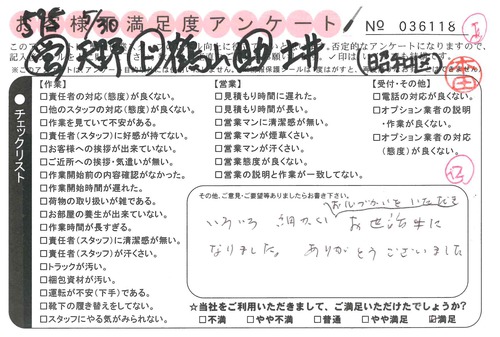 595 5/30
お客様満足度アンケート
No 036118
(昭和区)
チェックリスト
【作業】
□責任者の対応(態度)が良くない。
□他のスタッフの対応(態度)が良くない。
□作業を見ていて不安がある。
□責任者(スタッフ)に好感が持てない。
□お客様への挨拶が出来ていない。
□ご近所への挨拶・気遣いが無い。
□作業開始前の内容確認がなかった。
□作業開始時間が遅れた。
□荷物の取り扱いが雑である。
□お部屋の養生が出来ていない。
□作業時間が長すぎる。
□責任者(スタッフ)に清潔感が無い。
□責任者(スタッフ)が汗くさい。
□トラックが汚い。
□梱包資材が汚い。
□運転が不安(下手)である。
□靴下の履き替えをしてない。
□スタッフにやる気がみられない。
【営業】
□見積もり時間に遅れた。
□見積もり時間が長い。
□営業マンに清潔感が無い。
□営業マンが煙草くさい。
□営業マンが汗くさい。
□営業態度が良くない。
□営業の説明と作業が一致してない。
【受付・その他】
□電話の対応が良くない。
□オプション業者の説明
・作業が良くない。
□オプション業者の対応
(態度)が良くない。
その他、ご意見・ご要望等ありましたらお書き下さい。
お心づかいをいただき
いろいろ 細かい お世話に
なりました。 ありがとうございました
☆当社をご利用いただきまして、ご満足いただけたでしょうか?
□不満 □やや不満 □普通 □やや満足 ☑満足